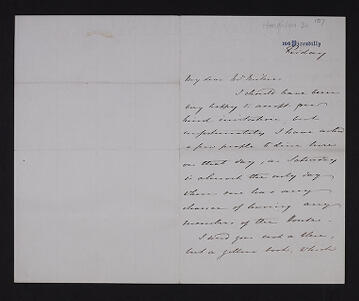 Piccadilly
Friday
My dear
I should have been
very happy to accept your
kind invitation, but
unfortunately I have asked
a few people to dine here
on that day, as Saturday
is almost the only day
when one has any
chance of having any
members of the House.
I send you not a
but a yellow book, which